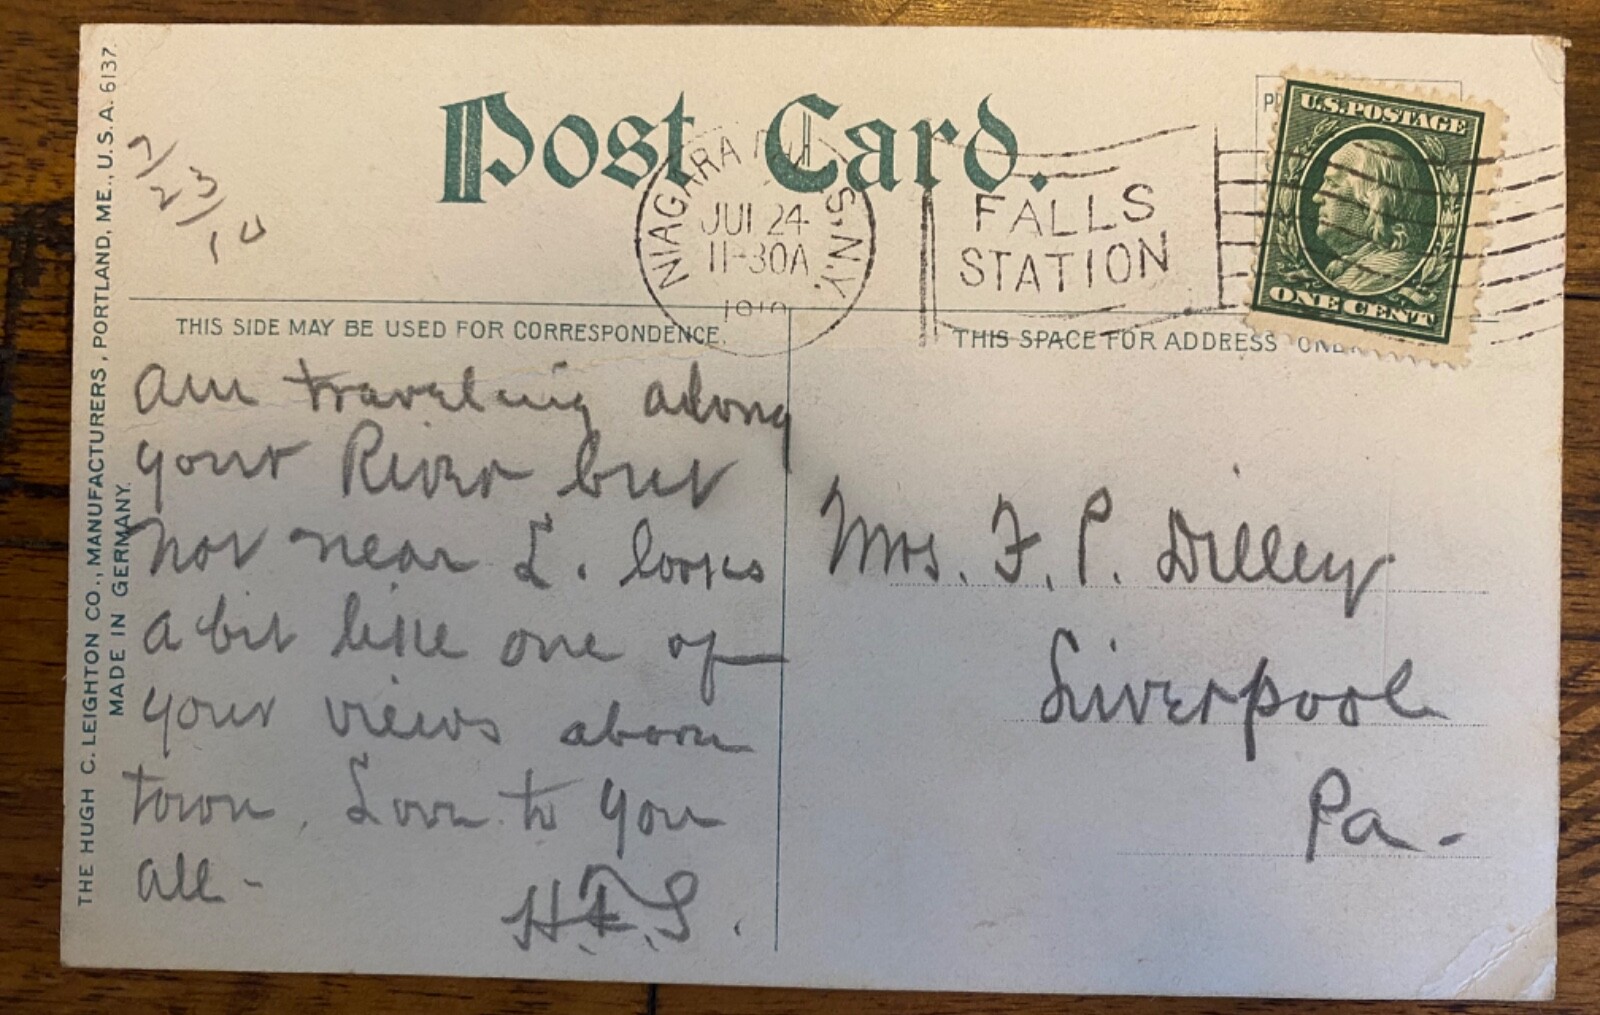 Post Card.
U.S. POSTAGE
ONE CENT
NIAGARA S, N.Y.
JUL 24
11-30A
1910
FALLS
STATION
7/23/10
THIS SIDE MAY BE USED FOR CORRESPONDENCE.
THIS SPACE FOR ADDRESS ONL
am traveling along
your River but
not near L. looks
a bit like one of
your views above
town. Love to you
all -
H.F.S.
Mrs. F. P. Dilley
Liverpool
Pa-
THE HUGH C. LEIGHTON CO., MANUFACTURERS, PORTLAND, ME., U.S.A. 6137.
MADE IN GERMANY.